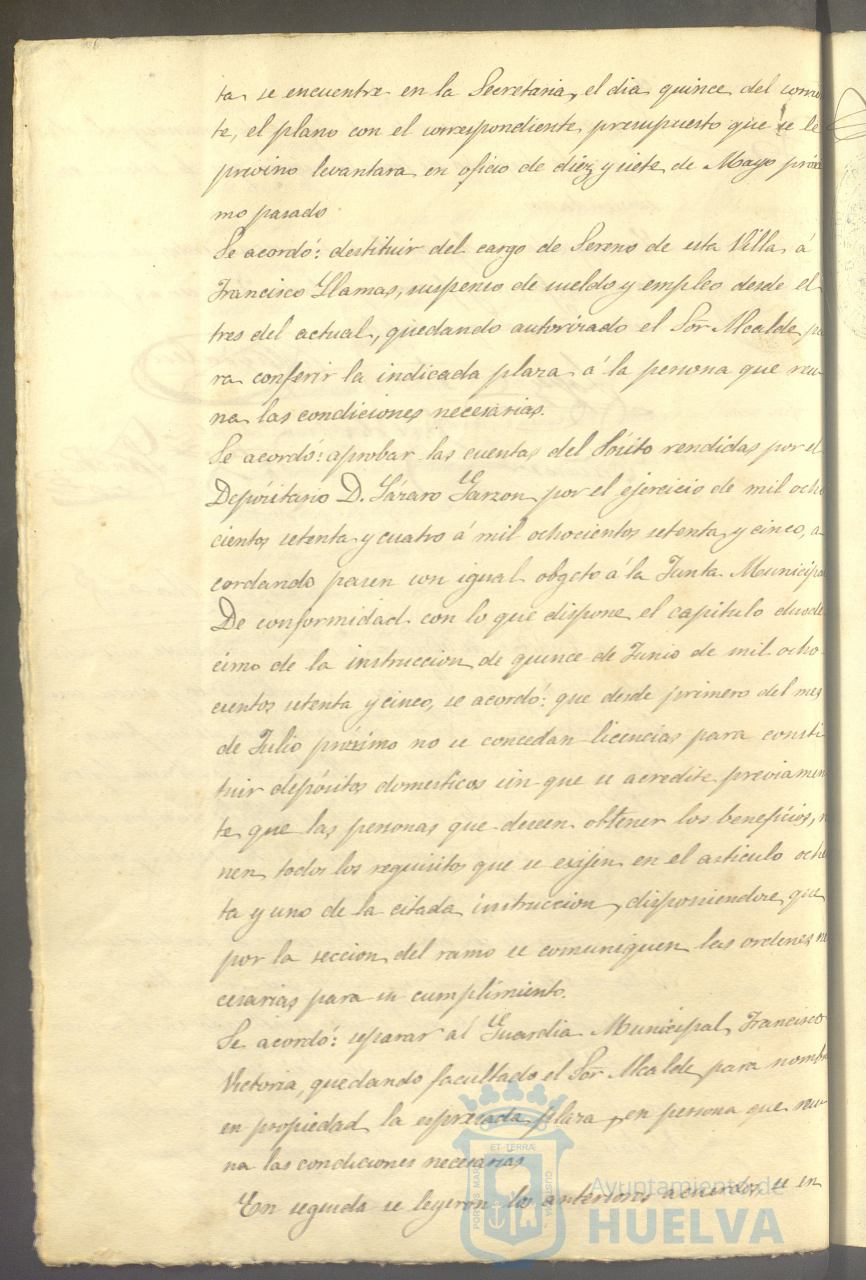 ta se encuentre en la Secretaria, el dia quince del corrien
te, el plano con el correspondiente presupuesto que se le
previno levantara en oficio de diez y siete de Mayo próxi
mo pasado
Se acordó: destituir del cargo de Sereno de esta Villa, á
Francisco Llamas, suspenso de sueldo y empleo desde el
tres del actual, quedando autorizado el Sor Alcalde, pa
ra conferir la indicada plaza á la persona que reu-
na las condiciones necesarias.
Se acordó: aprobar las cuentas del Pósito rendidas por el
Depositario D. Lázaro Garzon, por el ejercicio de mil ocho
cientos setenta y cuatro á mil ochocientos setenta y cinco, a
cordando pasen con igual obgeto á la Junta Municipal
De conformidad con lo que dispone el capitulo duode
cimo de la instruccion de quince de Junio de mil ocho-
cientos setenta y cinco, se acordó: que desde primero del mes
de Julio próximo no se concedan licencias para consti
tuir depósitos domesticos sin que se acredite previamen
te que las personas que deseen obtener los beneficios, reu
nen todos los requisitos que se exijen en el articulo ochen
ta y uno de la citada instruccion, disponiendose que
por la seccion del ramo se comuniquen las ordenes ne
cesarias para su cumplimiento.
Se acordó: separar al Guardia Municipal, Francisco
Victoria, quedando facultado el Sor Alcalde para nombrar
en propiedad la espresada plaza, en persona que reu-
na las condiciones necesarias
En seguida se leyeron los anteriores acuerdos, se en
PORTUS MARIS ET TERRÆ CUSTODIA
Ayuntamiento de
HUELVA